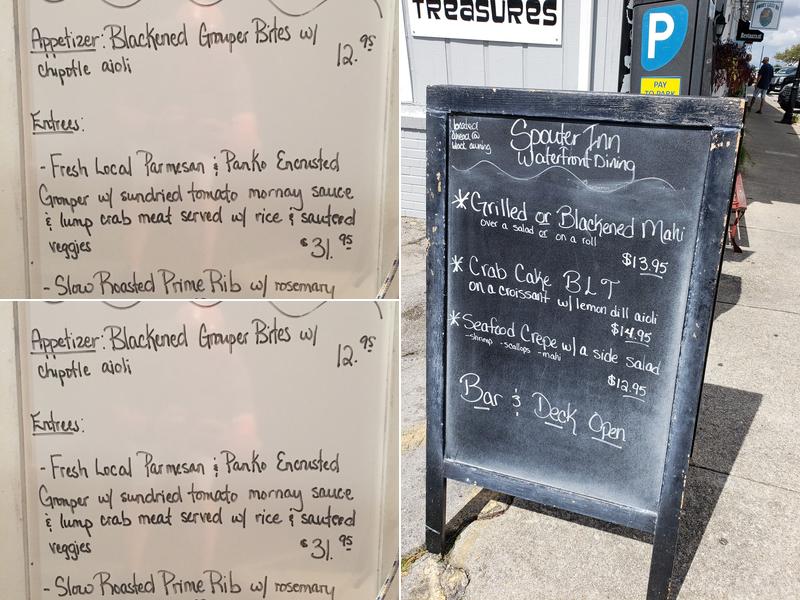 Appetizer: Blackened Grouper Bites w/
chipotle aioli
12.95
Entrees:
- Fresh Local Parmesan & Panko Encrusted
Grouper w/ sundried tomato mornay sauce
& lump crab meat served w/ rice & sauteed
veggies
$31.95
- Slow Roasted Prime Rib w/ rosemary
Appetizer: Blackened Grouper Bites w/
chipotle aioli
12.95
Entrees:
- Fresh Local Parmesan & Panko Encrusted
Grouper w/ sundried tomato mornay sauce
& lump crab meat served w/ rice & sauteed
veggies
$31.95
- Slow Roasted Prime Rib w/ rosemary
TREASURES
P
PAY
TO PARK
Restaurant
located
ahead @
black awning
Spouter Inn
Waterfront Dining
*Grilled or Blackened Mahi
over a salad or on a roll
$13.95
* Crab Cake BLT
on a croissant w/ lemon dill aioli
$14.95
*Seafood Crepe w/ a side salad
-shrimp -scallops -mahi
$12.95
Bar & Deck Open